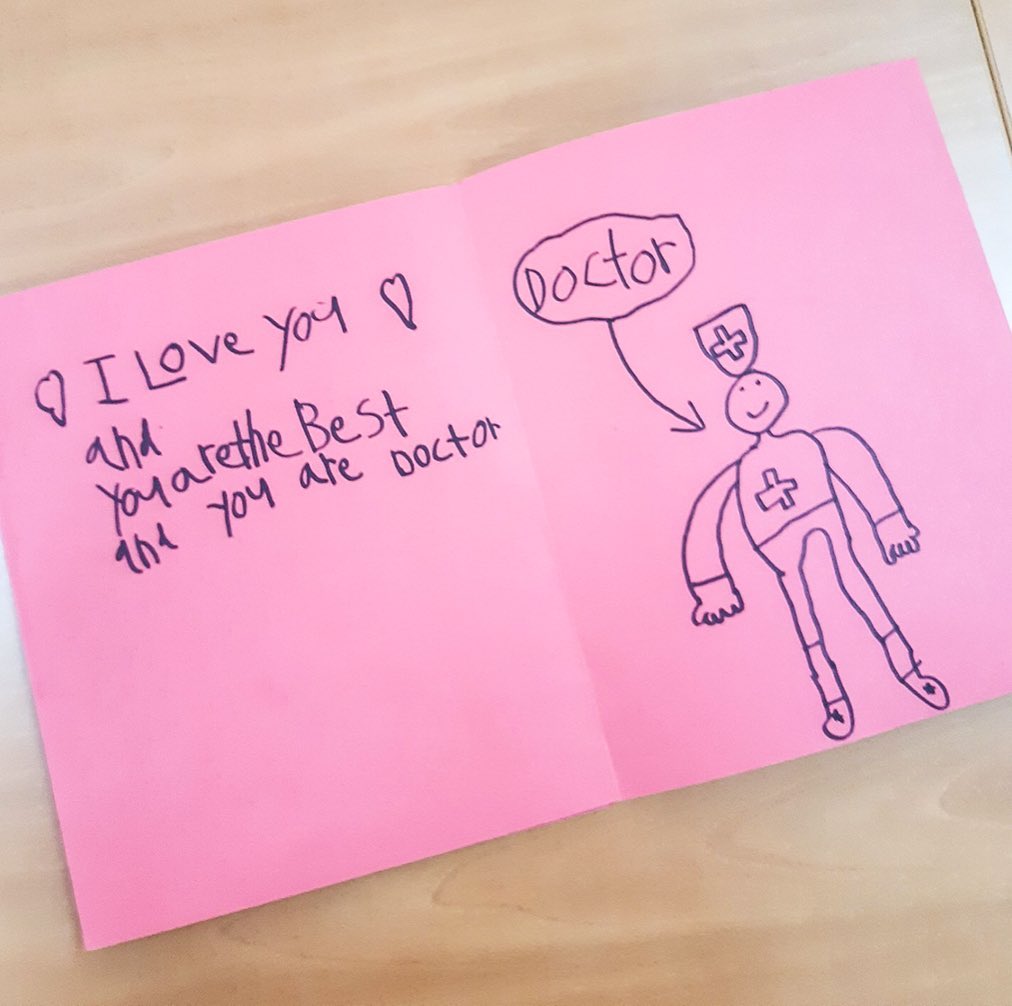 I Love you
and
you arethe Best
and you are Doctor
Doctor